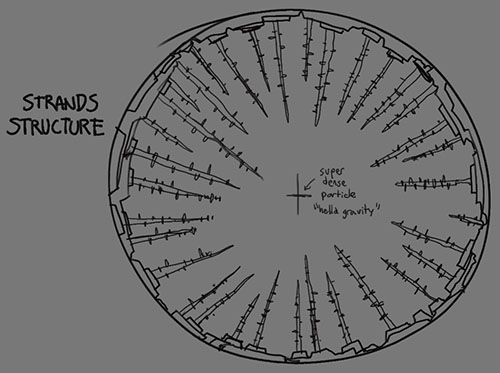 STRANDS
STRUCTURE
super
dense
particle
"hella gravity"